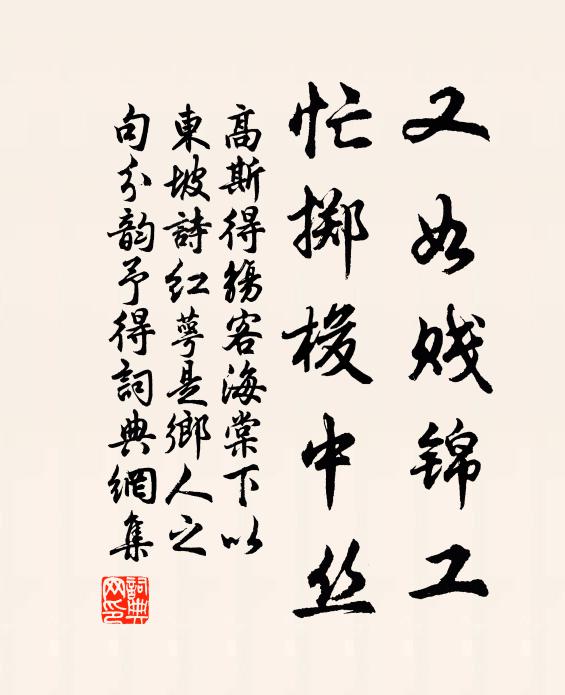 又如賤錦工
忙擲梭中丝
高斯得觴客海棠下以
東坡詩紅萼是鄉人之
句分韵予得詞典網集
詞典
网印